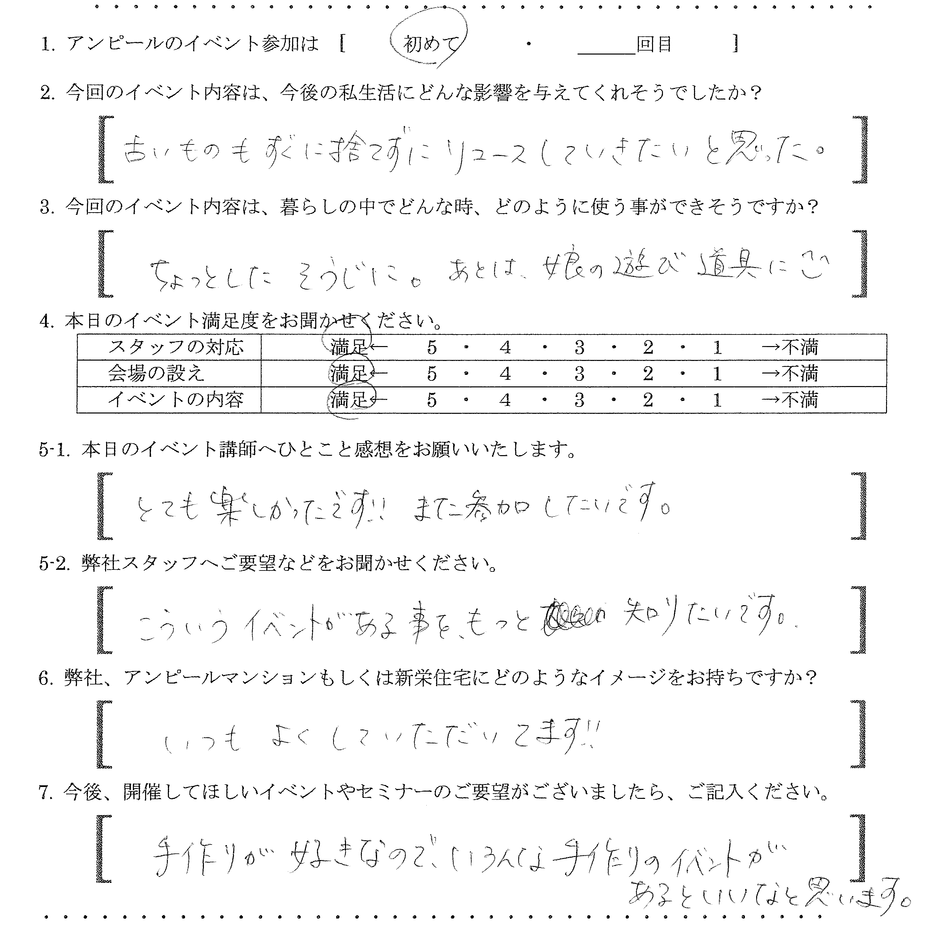 1. アンピールのイベント参加は [ 初めて ・ _____回目 ]
2. 今回のイベント内容は、今後の私生活にどんな影響を与えてくれそうでしたか？
[ 古いものもすぐに捨てずにリユースしていきたいと思った。 ]
3. 今回のイベント内容は、暮らしの中でどんな時、どのように使う事ができそうですか？
[ ちょっとした そうじに。 あとは、娘の遊び道具に ]
4. 本日のイベント満足度をお聞かせください。
スタッフの対応 満足← 5 ・ 4 ・ 3 ・ 2 ・ 1 →不満
会場の設え 満足← 5 ・ 4 ・ 3 ・ 2 ・ 1 →不満
イベントの内容 満足← 5 ・ 4 ・ 3 ・ 2 ・ 1 →不満
5-1. 本日のイベント講師へひとこと感想をお願いいたします。
[ とても楽しかったです!! また参加したいです。 ]
5-2. 弊社スタッフへご要望などをお聞かせください。
[ こういうイベントがある事を、もっと 知りたいです。 ]
6. 弊社、アンピールマンションもしくは新栄住宅にどのようなイメージをお持ちですか？
[ いつも よくしていただいてます!! ]
7. 今後、開催してほしいイベントやセミナーのご要望がございましたら、ご記入ください。
[ 手作りが好きなので、いろんな手作りのイベントが ]
あるといいなと思います。